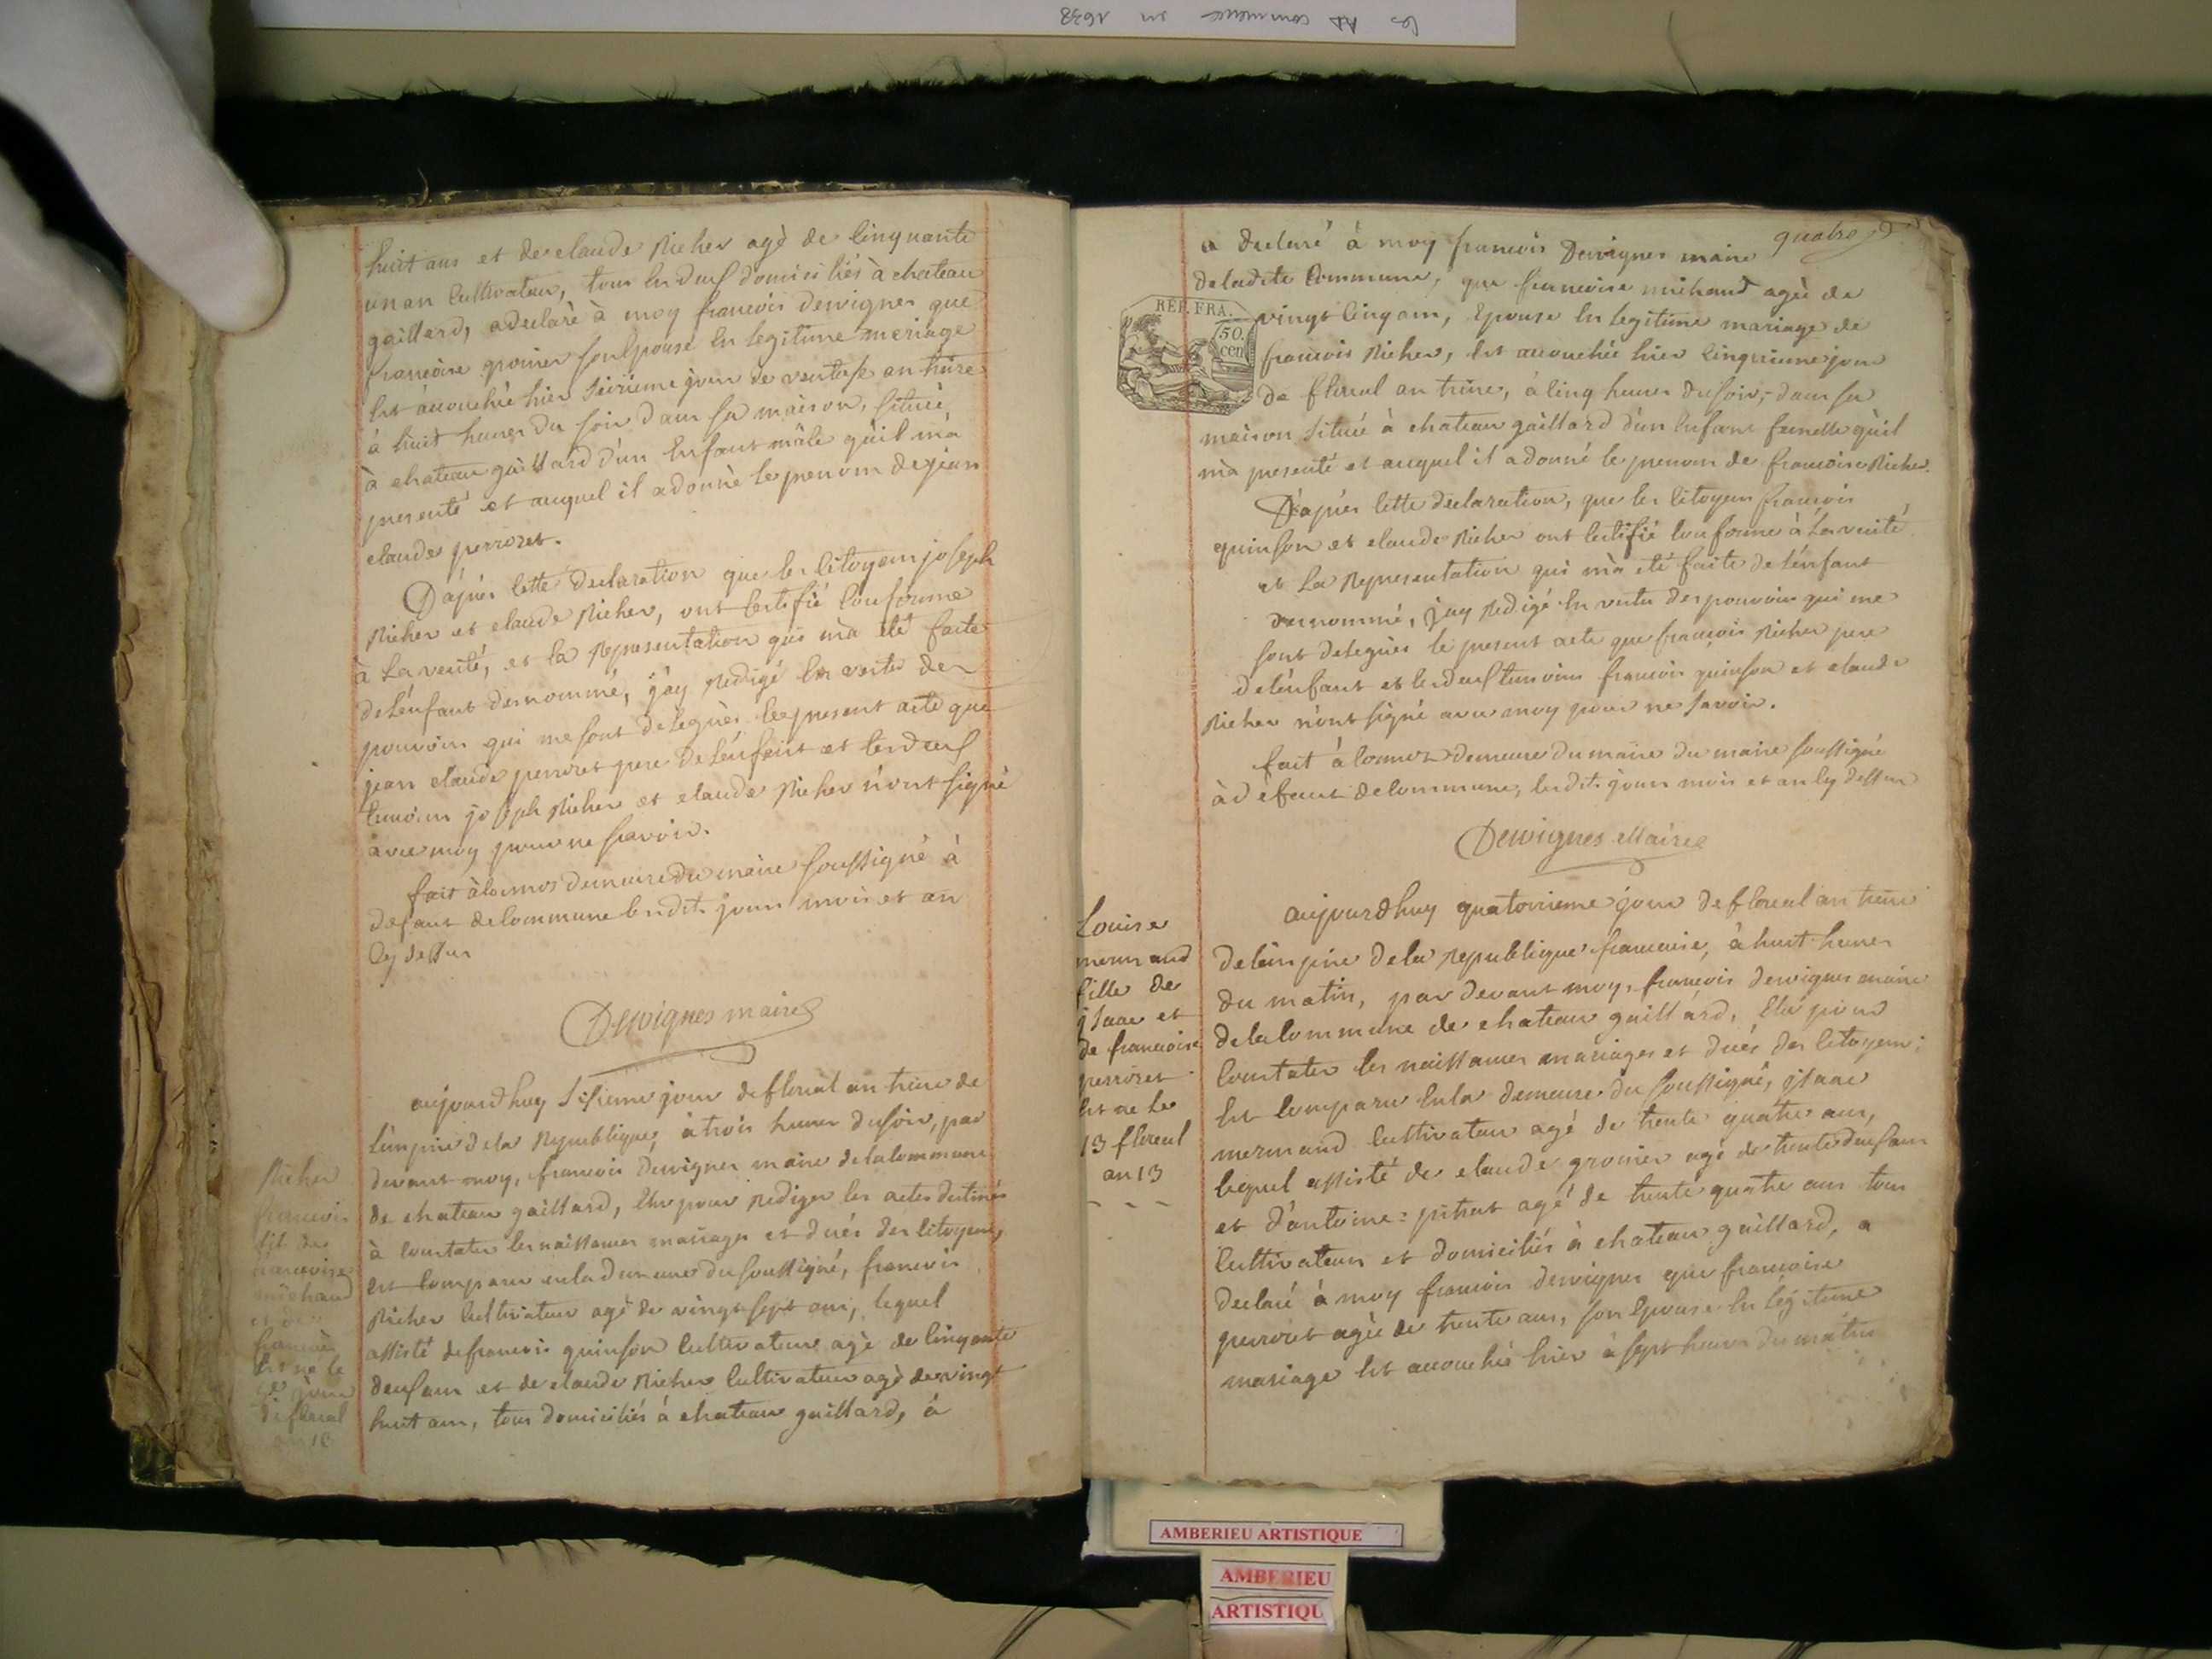 les AD commence en 1698
huit ans et de claude Richer agé de Cinquante
un an Cultivateur, tous les deux domiciliés à chateau
gaillard, a declaré à moy francois dervignes que
francoise gronier son Epouse En legitime mariage
Est accouchée hier seizieme jour de ventose an treize
à huit heures du soir dans sa maison, située
à chateau gaillard d'un Enfant mâle qu'il m'a
presenté et auquel il a donné le prenom de jean
claude perroset.
D'après Cette declaration que les Citoyens joseph
Richer et claude Richer, ont Certifié Conforme
à la verité, et la Representation qui m'a été faite
de l'énfant denommé, j'ay Redigé En vertu des
pouvoirs qui me sont delegués le present acte que
jean claude perroset pere de l'énfant et les deux
temoins joseph Richer et claude Richer n'ont signé
avec moy pour ne savoir.
fait à la demeure du maire soussigné à
defaut de Commune lesdits jours mois et an
Cy dessus
Dervignes maire
aujourdhuy sixieme jour de floreal an treize de
l'empire de la Republique, à trois heures du soir, par
devant moy, francois Dervignes maire de la Commune
de chateau gaillard, Elu pour Rediger les actes destinés
à Constater les naissances mariages et decés des Citoyens,
est Comparu en la demeure du soussigné, francois
Richer Cultivateur agé de vingt sept ans, lequel
assisté de francois quinson Cultivateur agé de Cinquante
deux ans et de claude Richer Cultivateur agé de vingt
huit ans, tous domiciliés à chateau gaillard, à
Richer
francois
fil de
francoise
michaud
et de
francois
Est né le
5e jour
de floreal
an 13
quatre
a declaré à moy francois Dervignes maire
de ladite Commune, que francoise michaud agée de
vingt Cinq ans, Epouse En legitime mariage de
francois Richer, Est accouchée hier Cinquieme jour
de floreal an treize, à Cinq heures du soir, dans sa
maison située à chateau gaillard d'un Enfant femelle qu'il
m'a presenté et auquel il a donné le prenom de francoise Richer.
REP. FRA.
50.
cen
D'après Cette declaration, que les Citoyens francois
quinson et claude Richer ont Certifié Conforme à la verité
et la Representation qui m'a été faite de l'énfant
denommé, j'ay Redigé En vertu des pouvoirs qui me
sont delegués le present acte que francois Richer pere
de l'énfant et les deux temoins francois quinson et claude
Richer n'ont signé avec moy pour ne savoir.
fait à demeure du maire du maire soussigné
à défaut de Commune, lesdits jours mois et an Cy dessus
Dervignes Maire
aujourdhuy quatorzieme jour de floreal an treize
de l'empire de la Republique francaise, à huit heures
du matin, par devant moy, francois dervignes maire
de la Commune de chateau gaillard, Elu pour
Constater les naissances mariages et decés des Citoyens;
Est Comparu En la demeure du soussigné, jsaac
mermand Cultivateur agé de trente quatre ans,
lequel assisté de claude gronier agé de trente deux ans
et d'antoine pitrat agé de trente quatre ans tous
Cultivateurs et domiciliés à chateau gaillard, a
declaré à moy francois dervignes que francoise
perroset agée de trente ans, son Epouse En légitime
mariage Est accouchée hier à sept heures du matin
Louise
mermand
fille de
jsaac et
de francoise
perroset
Est né le
13 floreal
an 13
AMBERIEU ARTISTIQUE
AMBERIEU
ARTISTIQU